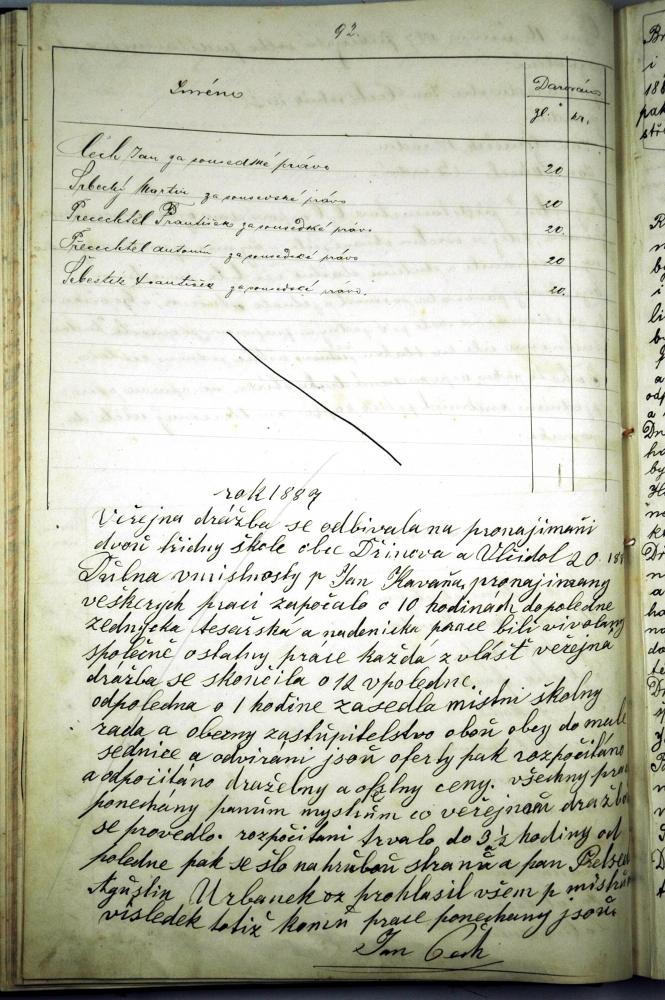 92.
Jméno
Darováno
zl. kr.
Čech Jan za sousedské právo 20
Srbecký Martin za sousevské právo 20
Přecechtěl František za sousedské právo 20.
Přecechtel Antonín za sousedské právo 20
Šebestík František za sousedské právo. 20.
rok 1889
Veřejna dražba se odbivala na pronajimaňi
dvou třidny škole obec Dřinova a Učidol 20. 188
Dubna vmistnosty p Jan Kavaňa, pronajimany
veškerych praci započalo o 10 hodinách dopoledne
zednycka tesařská a nadenicka prace bili vivolany
společně ostatny práce každá zvlášť veřejná
dražba se skončila o 12 vpoledne.
odpoledna o 1 hodine zasedla mistni školny
rada a obezny zastupitelstvo obou obcy do male
sednice a odvirani jsou oferty pak rozpočitáno
a odpočitáno dražebny a ofertny ceny. všechny prac
ponechany panům mystrům co veřejnou dražbo
se provedlo. rozpočitani trvalo do 3 ½ hodiny od
poledne pak se šlo na hrubou stranu a pan Předsed
Agustin Urbanek oz prohlasil všem p mistrům
visledek totiž komu prace ponechany jsou.
Jan Čech